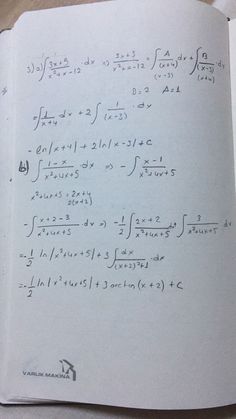 3) a) ∫ 3x+5 / x²+x-12 · dx => 3x+5 / x²+x-12 = ∫ A / (x+4) dx + ∫ B / (x-3) dx
(x-3) (x+4)
B=2 A=1
= ∫ 1 / x+4 · dx + 2 ∫ 1 / (x-3) · dx
= ln|x+4| + 2 ln|x-3| + C
b) ∫ 1-x / x²+4x+5 · dx => - ∫ x-1 / x²+4x+5
x²+4x+5 = 2x+4
2(x+2)
- ∫ x+2-3 / x²+4x+5 · dx => - 1/2 ∫ 2x+2 / x²+4x+5 + ∫ 3 / x²+4x+5 dx
= - 1/2 ln|x²+4x+5| + 3 ∫ dx / (x+2)²+1
= - 1/2 ln|x²+4x+5| + 3 arctan (x+2) + C
VARLIK MAKİNA